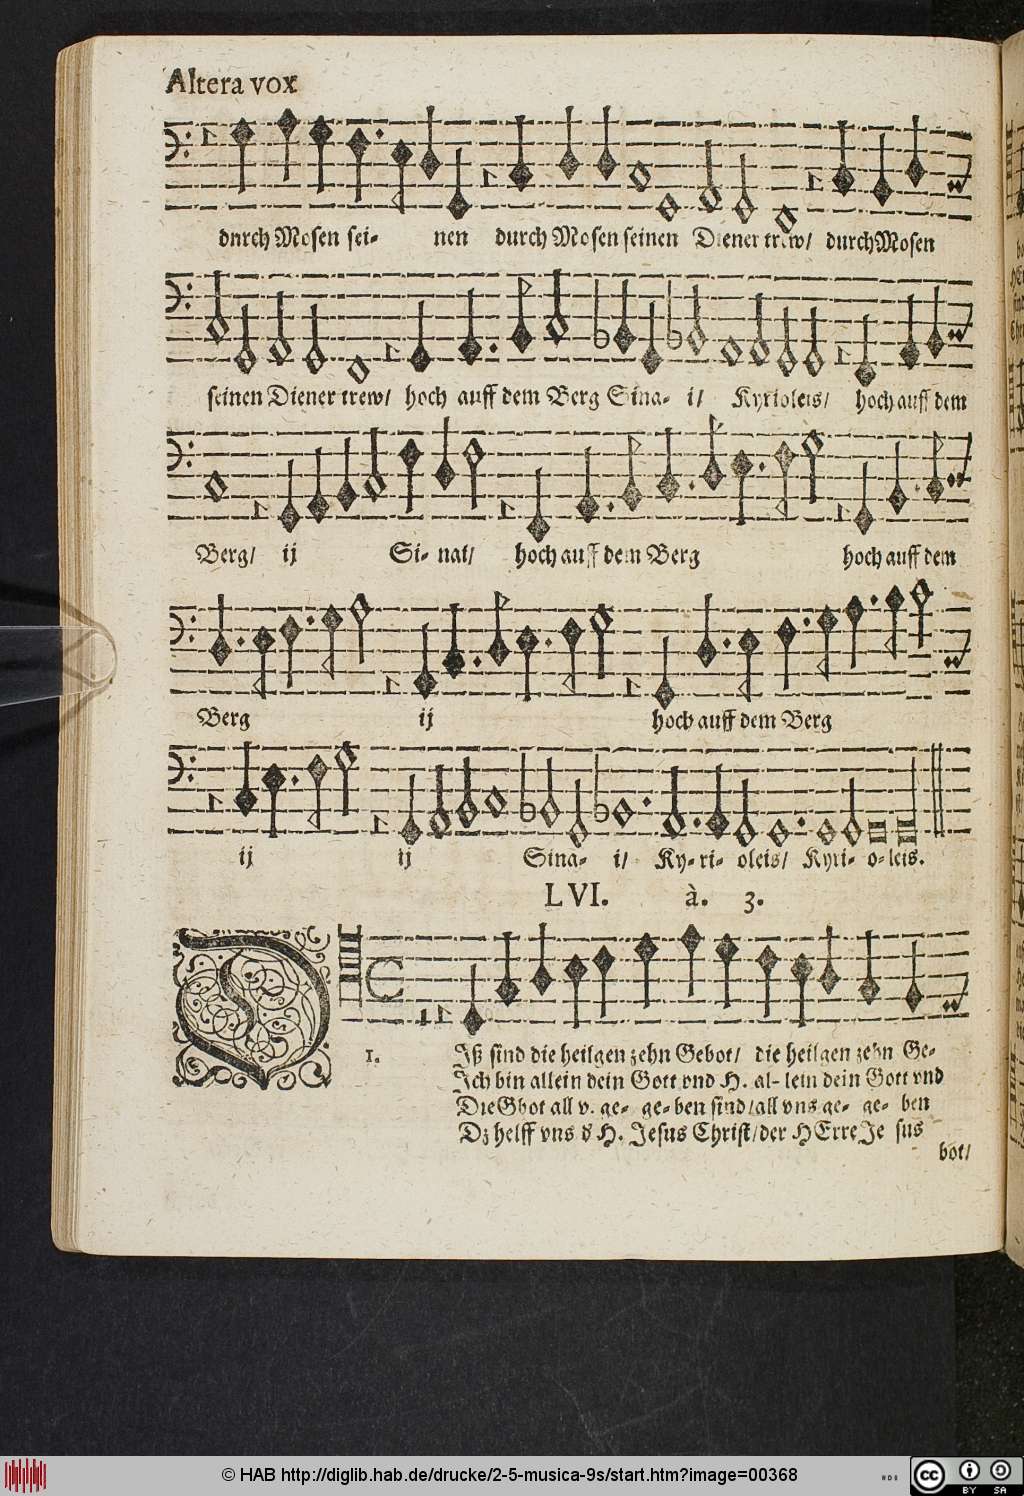 Altera vox
dnrch Mosen sei- nen durch Mosen seinen Diener trew/ durch Mosen
seinen Diener trew/ hoch auff dem Berg Sina- i/ Kyrioleis/ hoch auff dem
Berg/ ij Si- nai/ hoch auff dem Berg hoch auff dem
Berg ij hoch auff dem Berg
ij ij Sina- i/ Ky- ri- oleis/ Kyri- o- leis.
LVI. à. 3.
D
1. Iß sind die heilgen zehn Gebot/ die heilgen zehn Ge-
Ich bin allein dein Gott vnd H. al- lein dein Gott vnd
Die Gbot all v. ge- ge- ben sind/ all vns ge- ge- ben
Dz helff vns d H. Jesus Christ/ der HErre Je sus
bot/
© HAB http://diglib.hab.de/drucke/2-5-musica-9s/start.htm?image=00368
cc BY SA